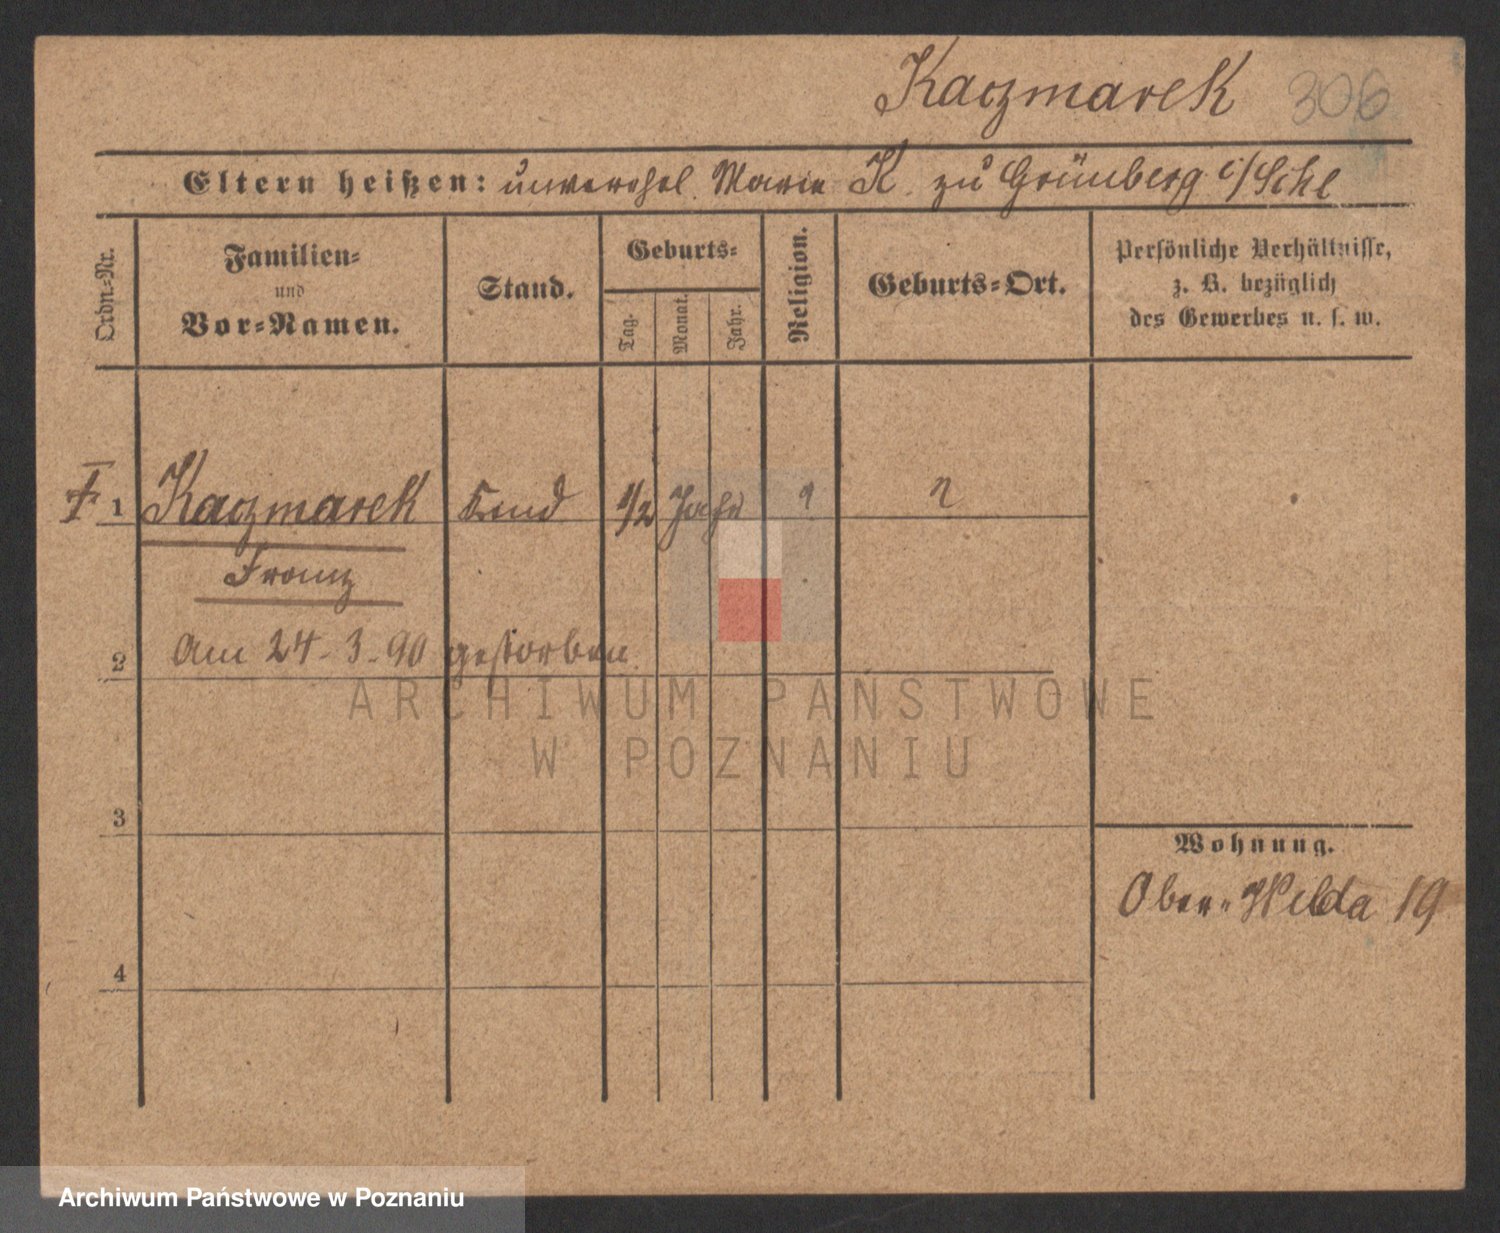 Kaczmarek 306
Eltern heißen: unverehel. Marie K. zu Grünberg i/Schl
Ordn.-Nr.
Familien-
und
Vor-Namen.
Stand.
Geburts-
Tag.
Monat.
Jahr.
Religion.
Geburts-Ort.
Persönliche Verhältnisse,
z. B. bezüglich
des Gewerbes u. s. w.
† 1 Kaczmarek Kind 1/2 Jahr ? ?
Franz
2 Am 24-3-90 gestorben.
ARCHIWUM PAŃSTWOWE
W POZNANIU
3
Wohnung.
Ober-Wilda 19
4
Archiwum Państwowe w Poznaniu